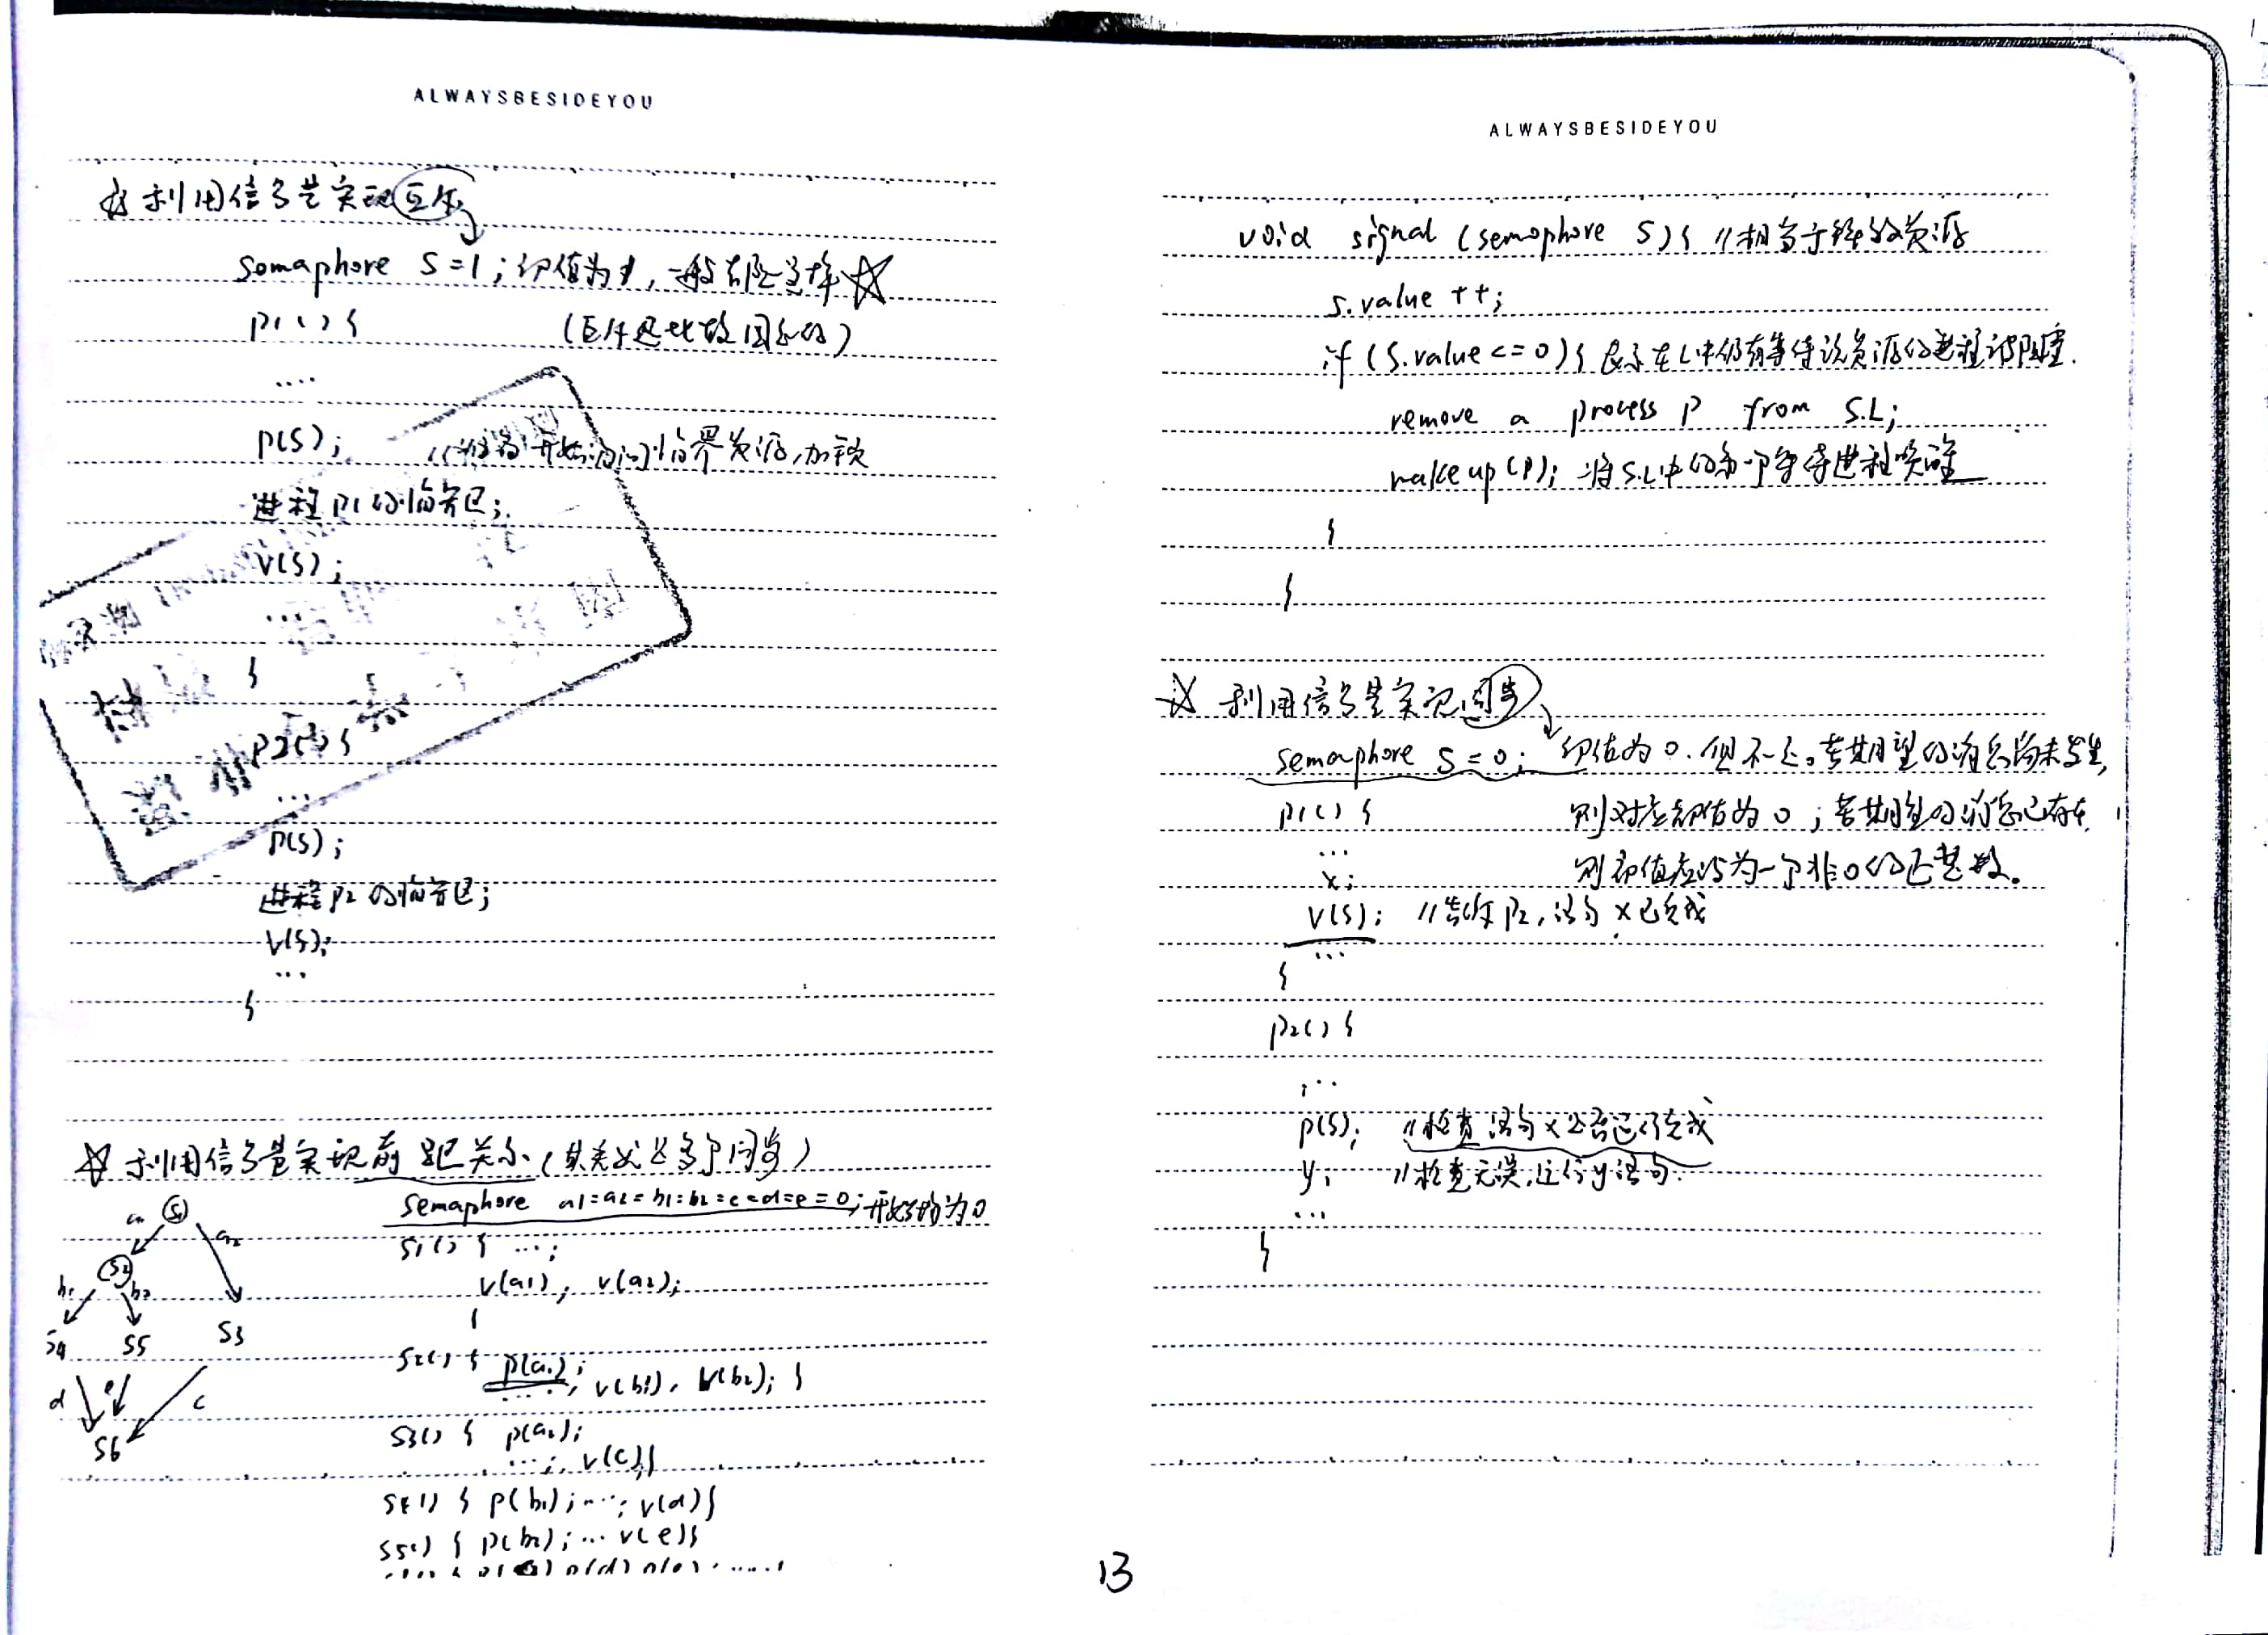 ALWAYSBESIDEYOU
☆ 利用信号量实现互斥
semaphore S=1; 初值为1, 一般都是这样 ☆
P1() {
(互斥是比较固定的)
....
P(S); //准备开始访问临界资源,加锁
进程P1的临界区;
V(S);
...
}
P2() {
...
P(S);
进程P2的临界区;
V(S);
...
}
☆ 利用信号量实现前驱关系 (其实就是多个同步)
semaphore a1=a2=b1=b2=c=d=e=0; 开始均为0
S1() { ...;
V(a1), V(a2);
}
S2() { P(a1);
...., V(b1), V(b2); }
S3() { P(a2);
...; V(c); }
S4() { P(b1); ...; V(d) }
S5() { P(b2); ... V(e) }
S1
a1
a2
S2
b1
b2
S4
S5
S3
d
e
c
S6
ALWAYSBESIDEYOU
void signal (semaphore S) { //相当于释放资源
S.value ++;
if (S.value <= 0) { 表示在L中仍有等待该资源的进程被阻塞.
remove a process P from S.L;
wakeup(P); 将S.L中的第一个等待进程唤醒
}
}
☆ 利用信号量实现同步
semaphore S = 0; 初值为0. 但不一定。若期望的消息尚未发生,
P1() { 则对应初值为0; 若期望的消息已存在,
... 则初值应为一个非0的正整数。
x;
V(S); //告诉P2, 语句x已完成
...
}
P2() {
...
P(S); //检查语句x是否运行完成
y; //检查无误, 运行y语句.
...
}
13